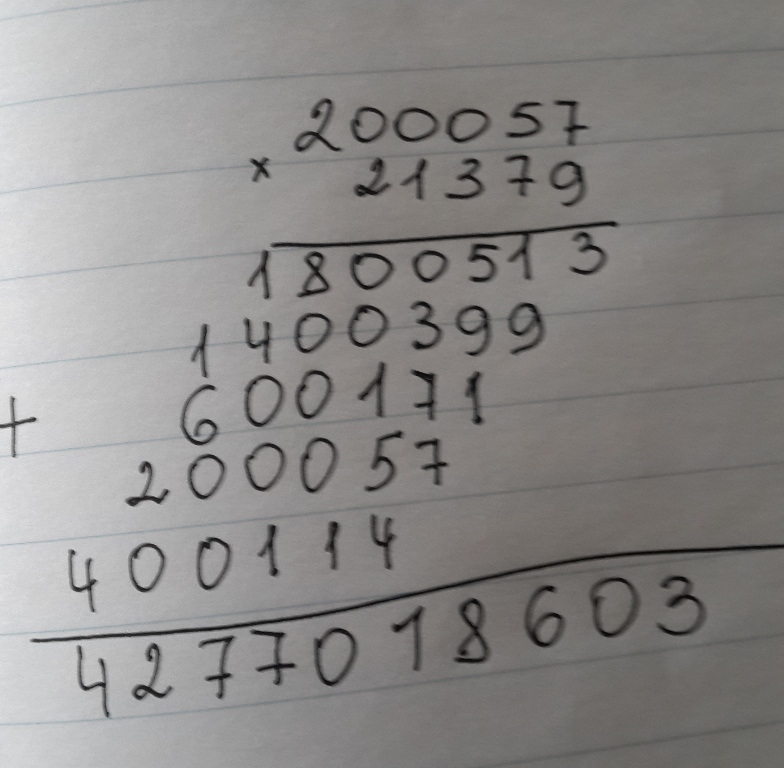 200057
× 21379
1800513
1400399
+ 600171
200057
400114
4277018603